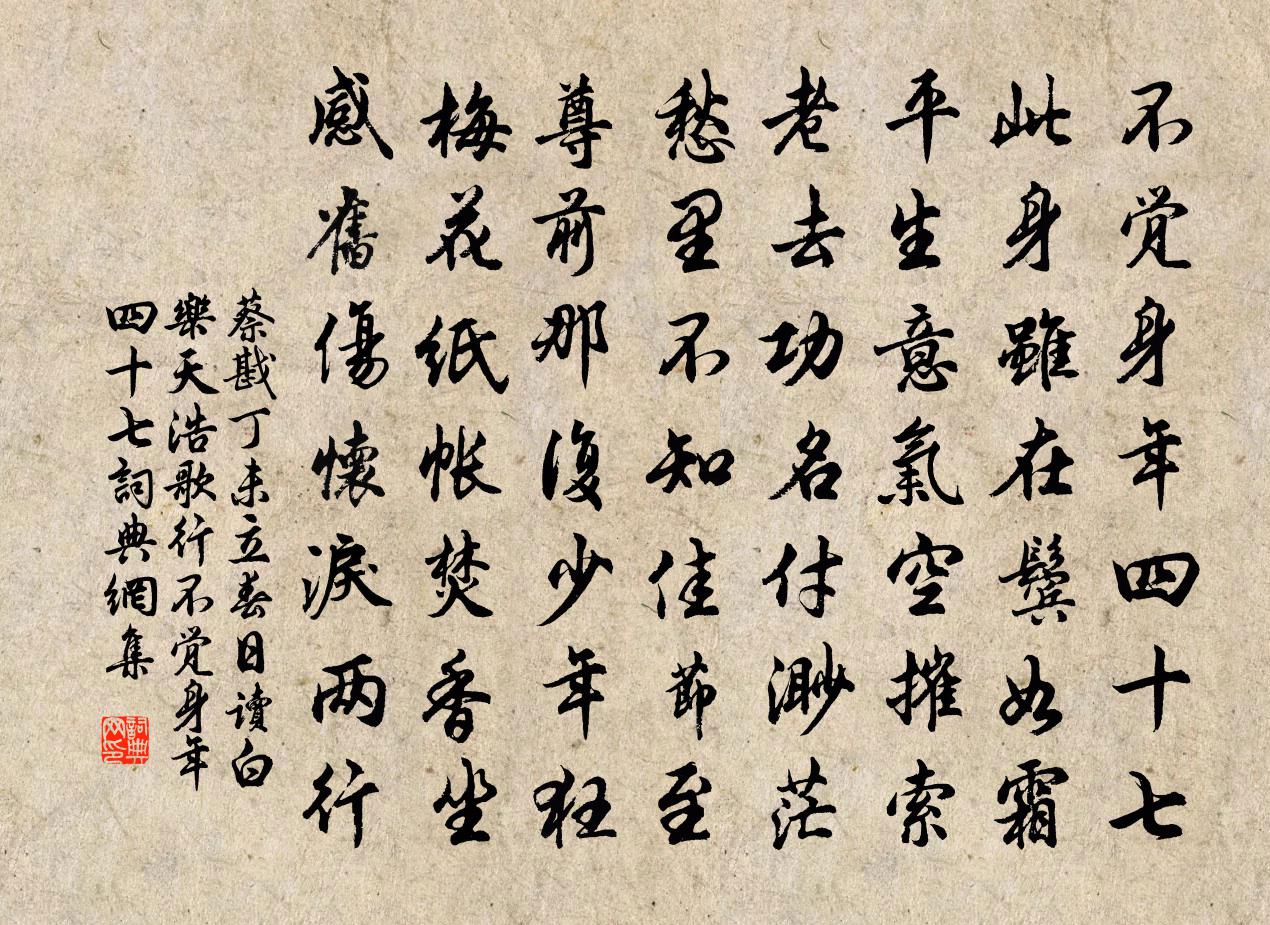 不觉身年四十七
此身雖在鬓如霜
平生意氣空摧索
老去功名付渺茫
愁里不知佳節至
尊前那復少年狂
梅花纸帐焚香坐
感舊傷懷淚两行
蔡戡丁未立春日讀白
樂天浩歌行不觉身年
四十七詞典網集
詞典网印